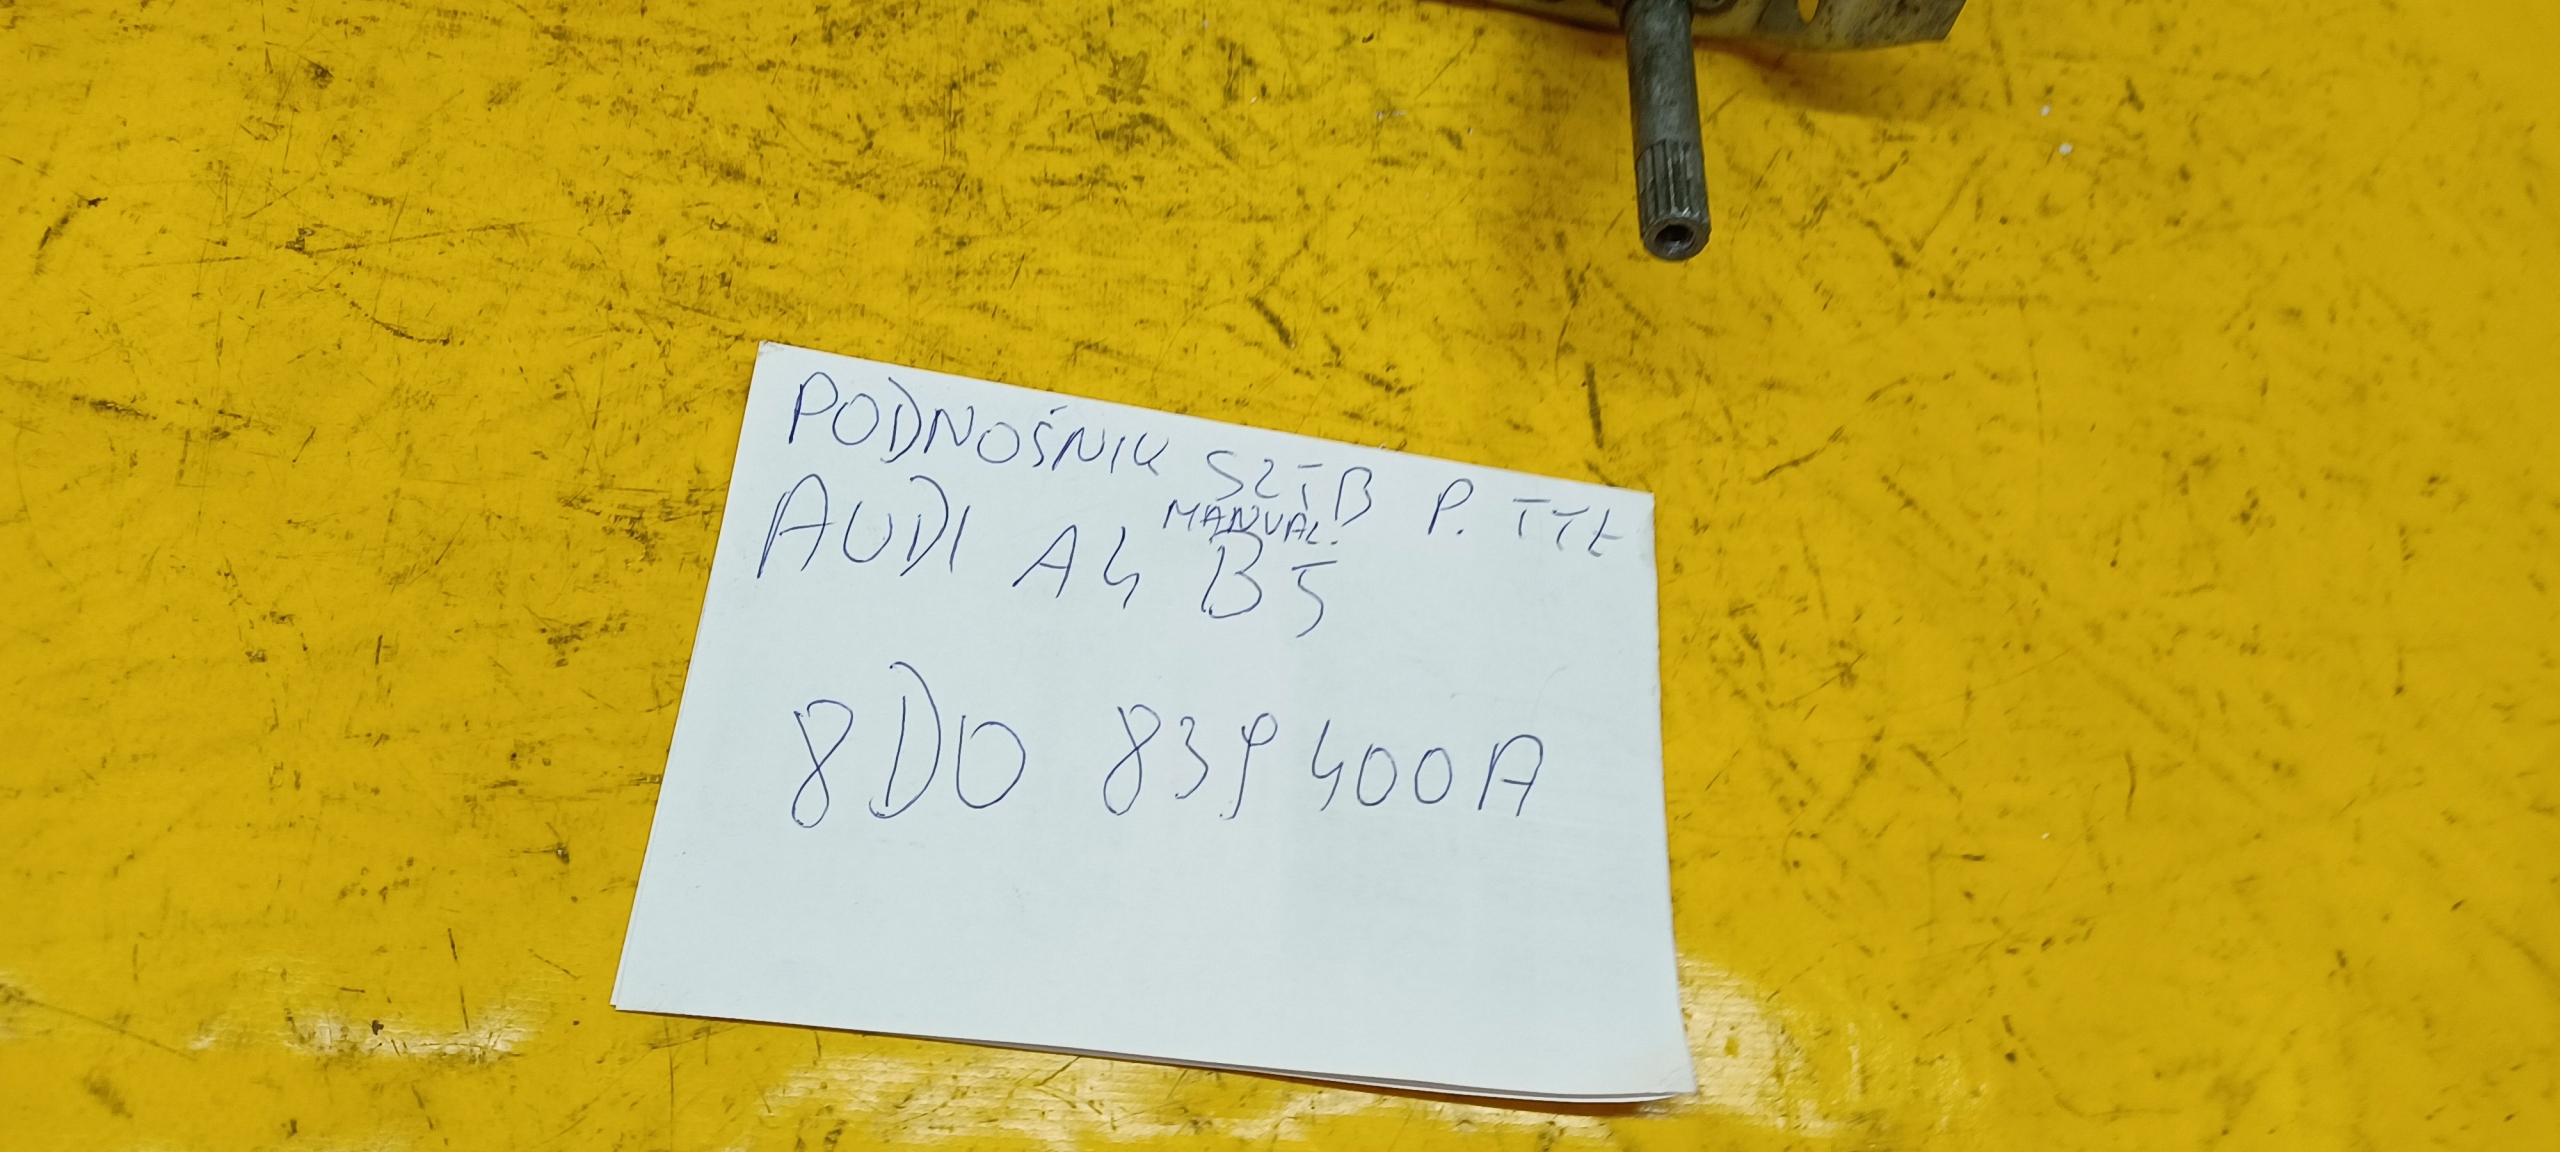 PODNOŚNIK SZTB P. TTŁ
MANUAL.
AUDI A4 B5
8D0 839400A